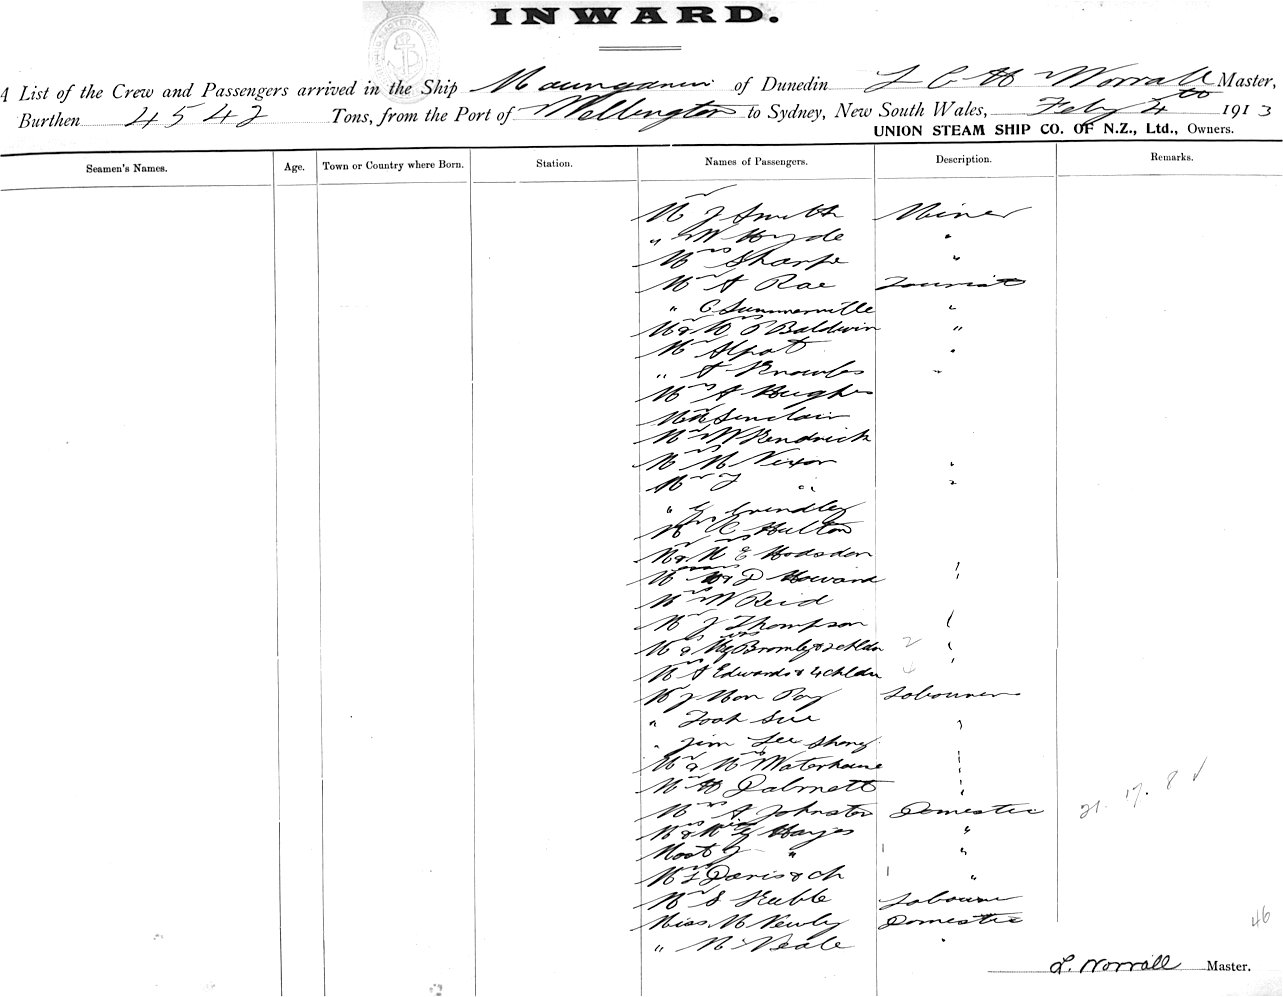 INWARD.
A List of the Crew and Passengers arrived in the Ship Maunganui of Dunedin L C H Worrall Master,
Burthen 4542 Tons, from the Port of Wellington to Sydney, New South Wales, Feby 4th 1913
UNION STEAM SHIP CO. OF N.Z., Ltd., Owners.
Seamen's Names. Age. Town or Country where Born. Station. Names of Passengers. Description. Remarks.
Mr J Smith Miner
" W Hyde "
Mrs Sharpe "
Mr A Rae Tourist
" C Summerville "
Mr & Mrs P Baldwin "
Mr Alpot "
" A Knowles "
Mrs A Hughes
Mr Sinclair
Mr W Kendrick
Mrs M Nixon "
Mr J " "
" G Grindley
Mrs R Hulton
Mr & Mrs E Hodsdon
Howard "
Mrs W Reid
Mr J Thompson "
Mr & Mrs Bromley & 2 chldn 2 "
Mrs A Edwards & 4 chldn 4 "
Mr J Mon Poy Labourer
" Took Sue "
" Jim Lee Shong "
Mr & Mrs Waterhouse "
Mr H Dalmett "
Mrs A Johnston Domestic
21. 17. 8 ✓
Hayes "
Mast J " 1 "
Mrs L Davis & ch 1 "
Mr S Keeble Labourer
Miss M Newly Domestic
46
" M Neale "
L. Worrall Master.